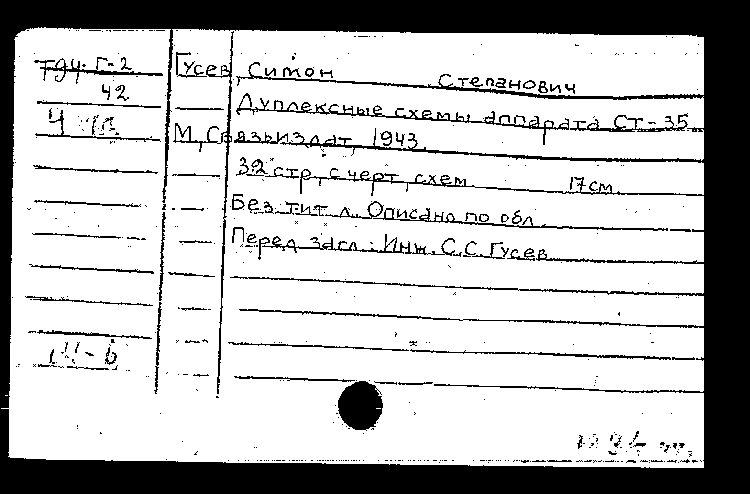 Т94 Г-2
42
Гусев, Симон Степанович
Дуплексные схемы аппарата СТ-35.
М., Связьиздат, 1943.
32 стр., с черт., схем. 17 см.
Без тит. л. Описано по обл.
Перед загл.: Инж. С.С. Гусев